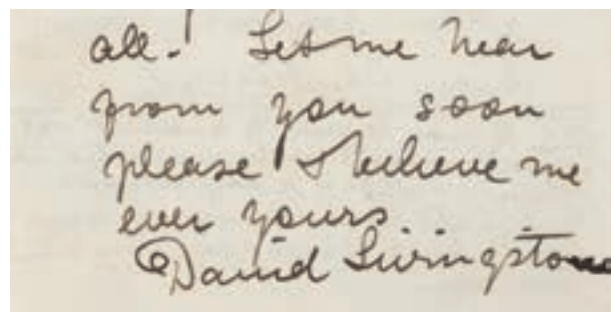 all. Let me hear
from you soon
please & believe me
ever yours
David Livingstone